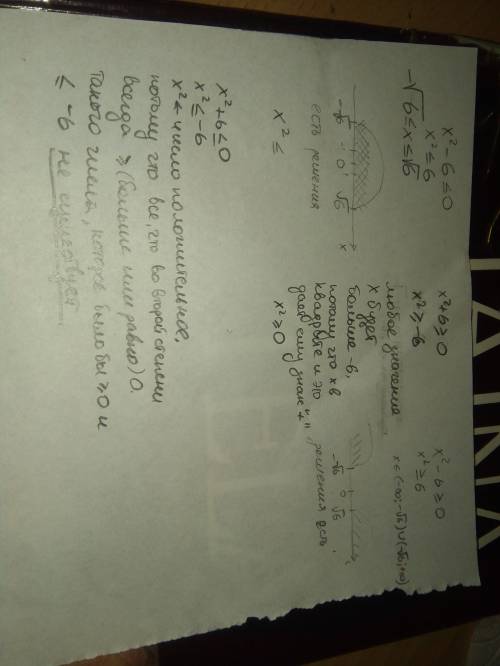 x² - 6 ≤ 0
x² ≤ 6
-√6 ≤ x ≤ √6
-√6 0 √6 x
есть решения
x² ≤
x² + 6 ≤ 0
x² ≤ -6
x² ← число положительное,
потому что все, что во второй степени
всегда ≥ (больше или равно) 0.
Такого числа, которое было бы ≥ 0 и
≤ -6 не существует
x² + 6 ≥ 0
x² ≥ -6
любое значение
x будет
больше -6,
потому что x в
квадрате и это
даёт ему знак "+"
x² ≥ 0
x² - 6 ≥ 0
x² ≥ 6
-√6 0 √6
решения есть